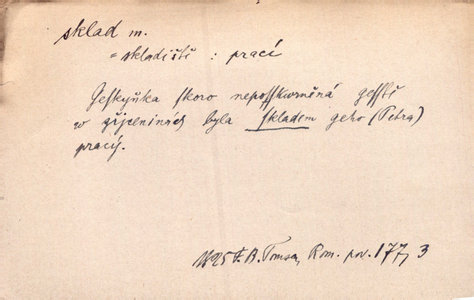 sklad m.
= skladiště : prací
Geskyňka skoro neposskwrněná gessтě
w zřjceninách byla skladem geho (Petra)
pracý.
1825 F. B. Tomsa, Rom. pov. 177, 3